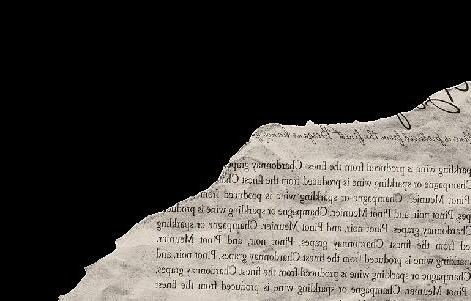 produced from the finest
sparkling wine is produced from the finest Chardonnay grapes
Champagne or sparkling wine is produced from the finest Ch
Pinot Meunier. Champagne or sparkling wine is produced from
Pinot noir, and Pinot Meunier. Champagne or sparkling wine is produced
grapes, Pinot noir, and Pinot Meunier. Champagne or sparkling
from the finest Chardonnay grapes, Pinot noir, and Pinot Meunier.
sparkling wine is produced from the finest Chardonnay grapes, Pinot noir, and
Champagne or sparkling wine is produced from the finest Chardonnay grapes,
Pinot Meunier. Champagne or sparkling wine is produced from the finest